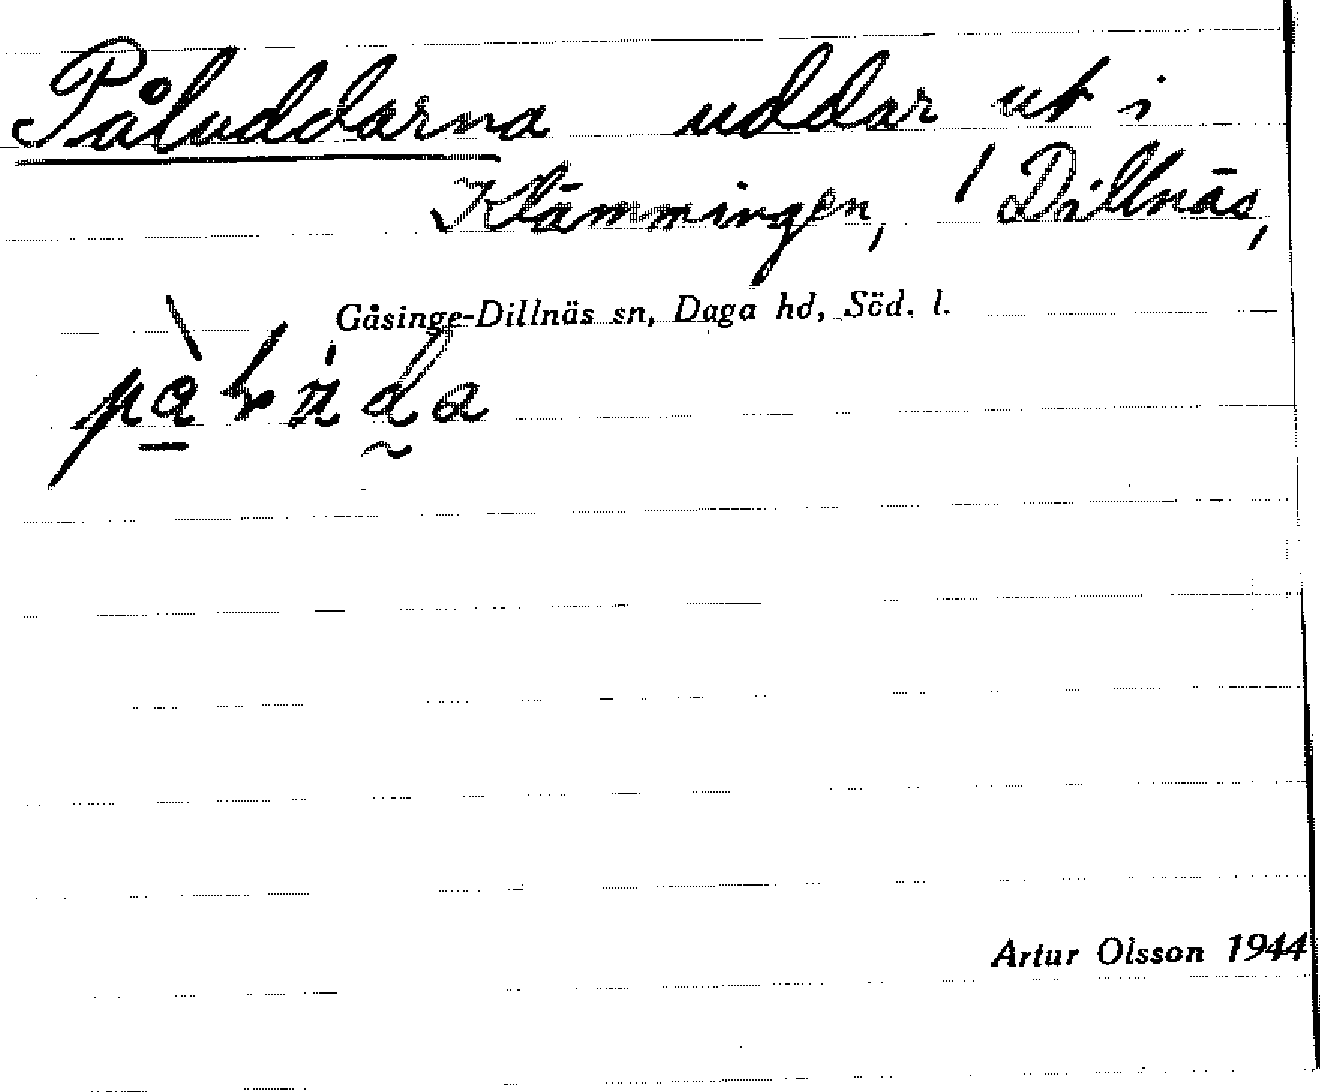 Påluddarna uddar ut i
Klämmingen, i Dillnäs,
Gåsinge-Dillnäs sn, Daga hd, Söd. l.
Artur Olsson 1944